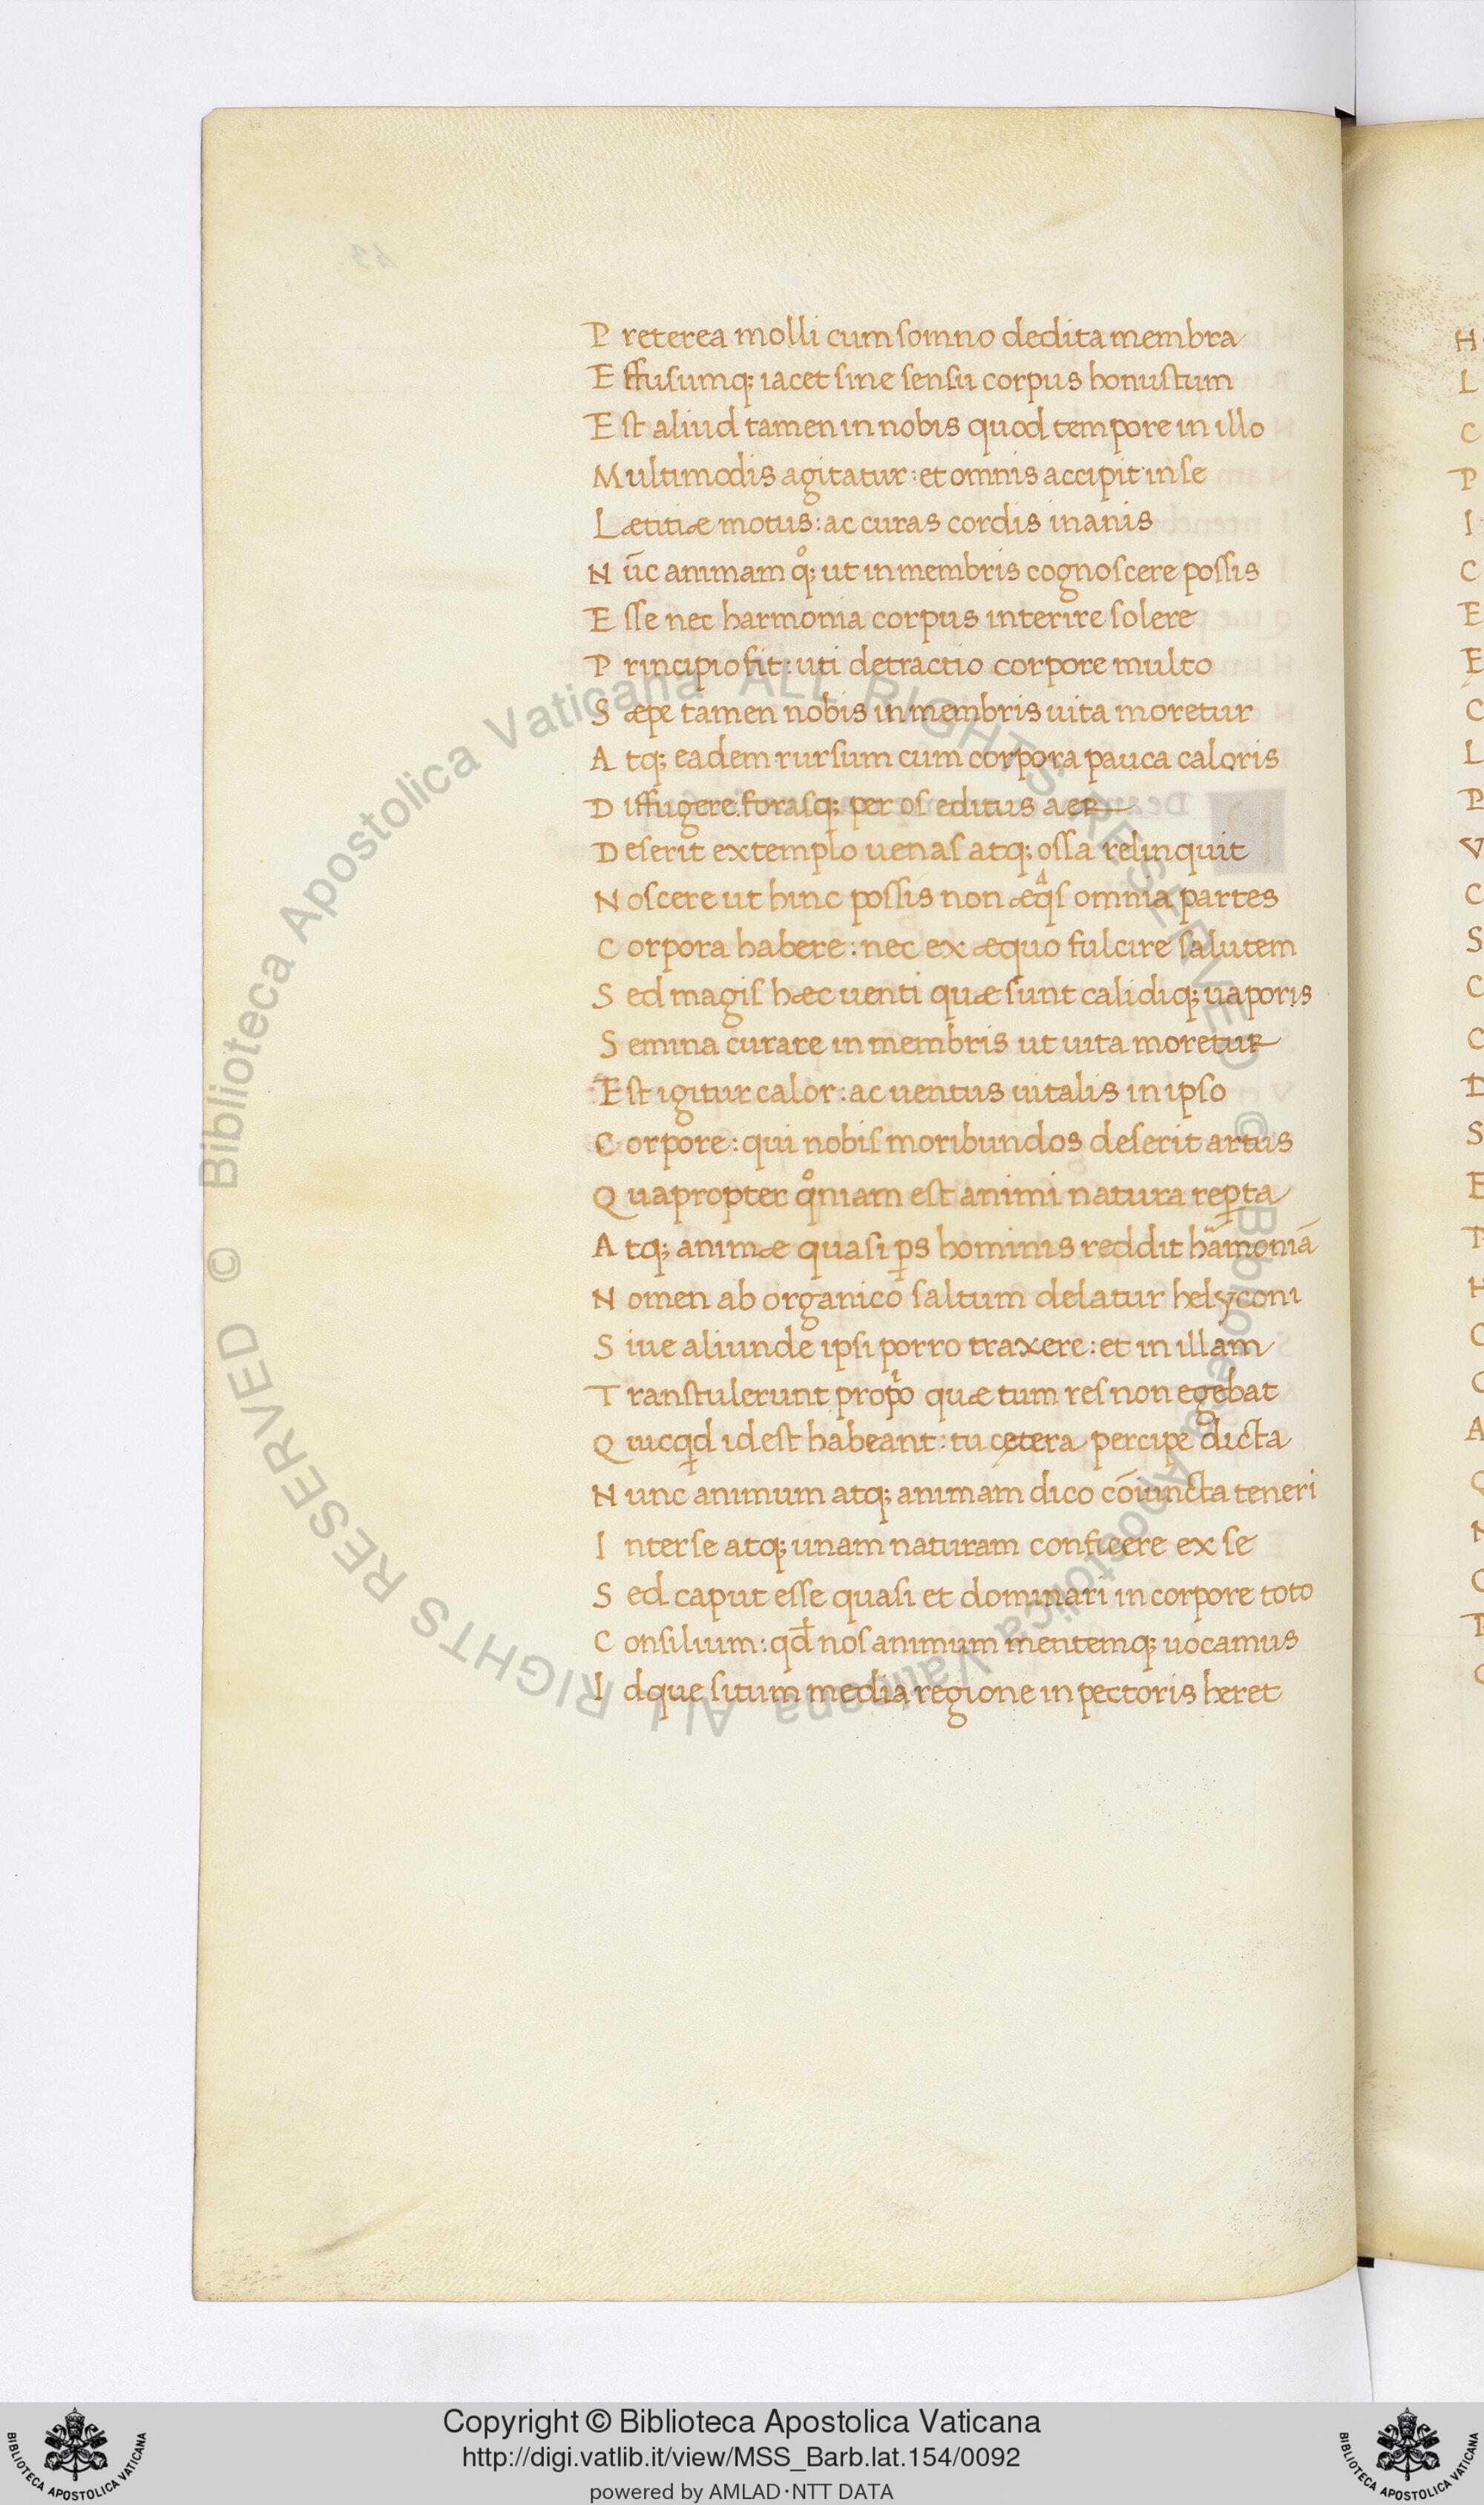 P reterea molli cum somno dedita membra
E ffusumq; iacet sine sensu corpus honustum
E st aliud tamen in nobis quod tempore in illo
M ultimodis agitatur: et omnis accipit in se
L ætitiæ motus: ac curas cordis inanis
N ūc animam qͦ; ut in membris cognoscere possis
E sse nec harmonia corpus interire solere
P rincipio fit: uti detractio corpore multo
S æpe tamen nobis in membris uita moretur
A tq; eadem rursum cum corpora pauca caloris
D iffugere: forasq; per os editus aer
D eserit extemplo uenas atq; ossa relinquit
N oscere ut hinc possis non æqᵃs omnia partes
C orpora habere: nec ex æquo fulcire salutem
S ed magis hæc uenti quæ sunt calidiq; uaporis
S emina curare in membris ut uita moretur
E st igitur calor: ac uentus uitalis in ipso
C orpore: qui nobis moribundos deserit artus
Q uapropter qͦniam est animi natura reꝑta
A tq; animæ quasi ꝑs hominis reddit ha̎moniā
N omen ab organico saltum delatur helyconi
S iue aliunde ipsi porro traxere: et in illam
T ranstulerunt propͥo quæ tum res non egebat
Q uicqd id est habeant: tu cętera percipe dicta
N unc animum atq; animam dico cōiuncta teneri
I nter se atq; unam naturam conficere ex se
S ed caput esse quasi et dominari in corpore toto
C onsilium: qđ nos animum mentemq; uocamus
I dque situm media regione in pectoris heret
H
L
C
P
I
C
E
E
C
L
P
V
C
S
C
C
D
S
E
T
H
C
C
A
Q
N
C
T
C
© Biblioteca Apostolica Vaticana ALL RIGHTS RESERVED © Biblioteca Apostolica Vaticana ALL RIGHTS RESERVED
Copyright © Biblioteca Apostolica Vaticana
http://digi.vatlib.it/view/MSS_Barb.lat.154/0092
powered by AMLAD·NTT DATA
BIBLIOTECA APOSTOLICA VATICANA
BIBLIOTECA APOSTOLICA VATICANA